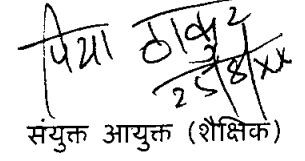 प्रिया ठाकुर
25/8/xx
संयुक्त आयुक्त (शैक्षिक)